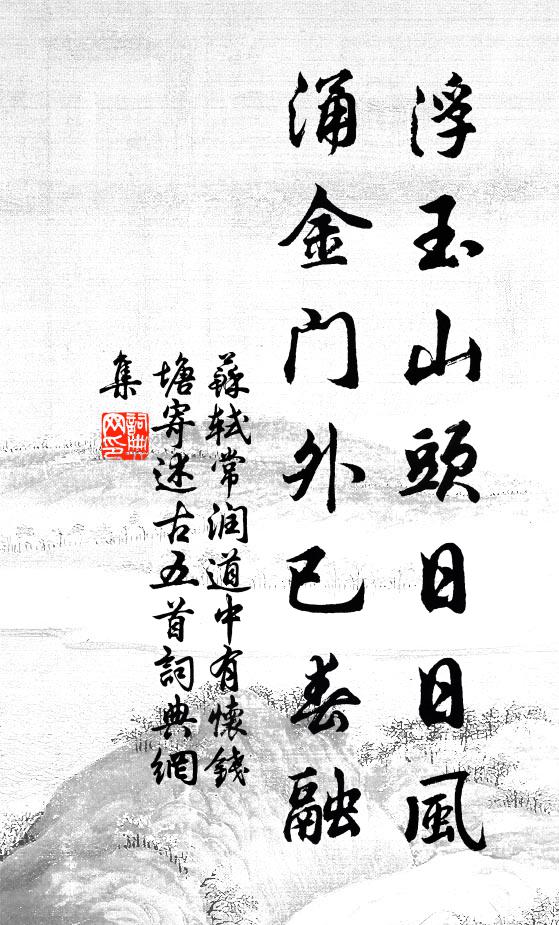 浮玉山頭日日風
涌金门外已春融
蘇軾常润道中有懷錢
塘寄述古五首詞典網
集
詞典網印